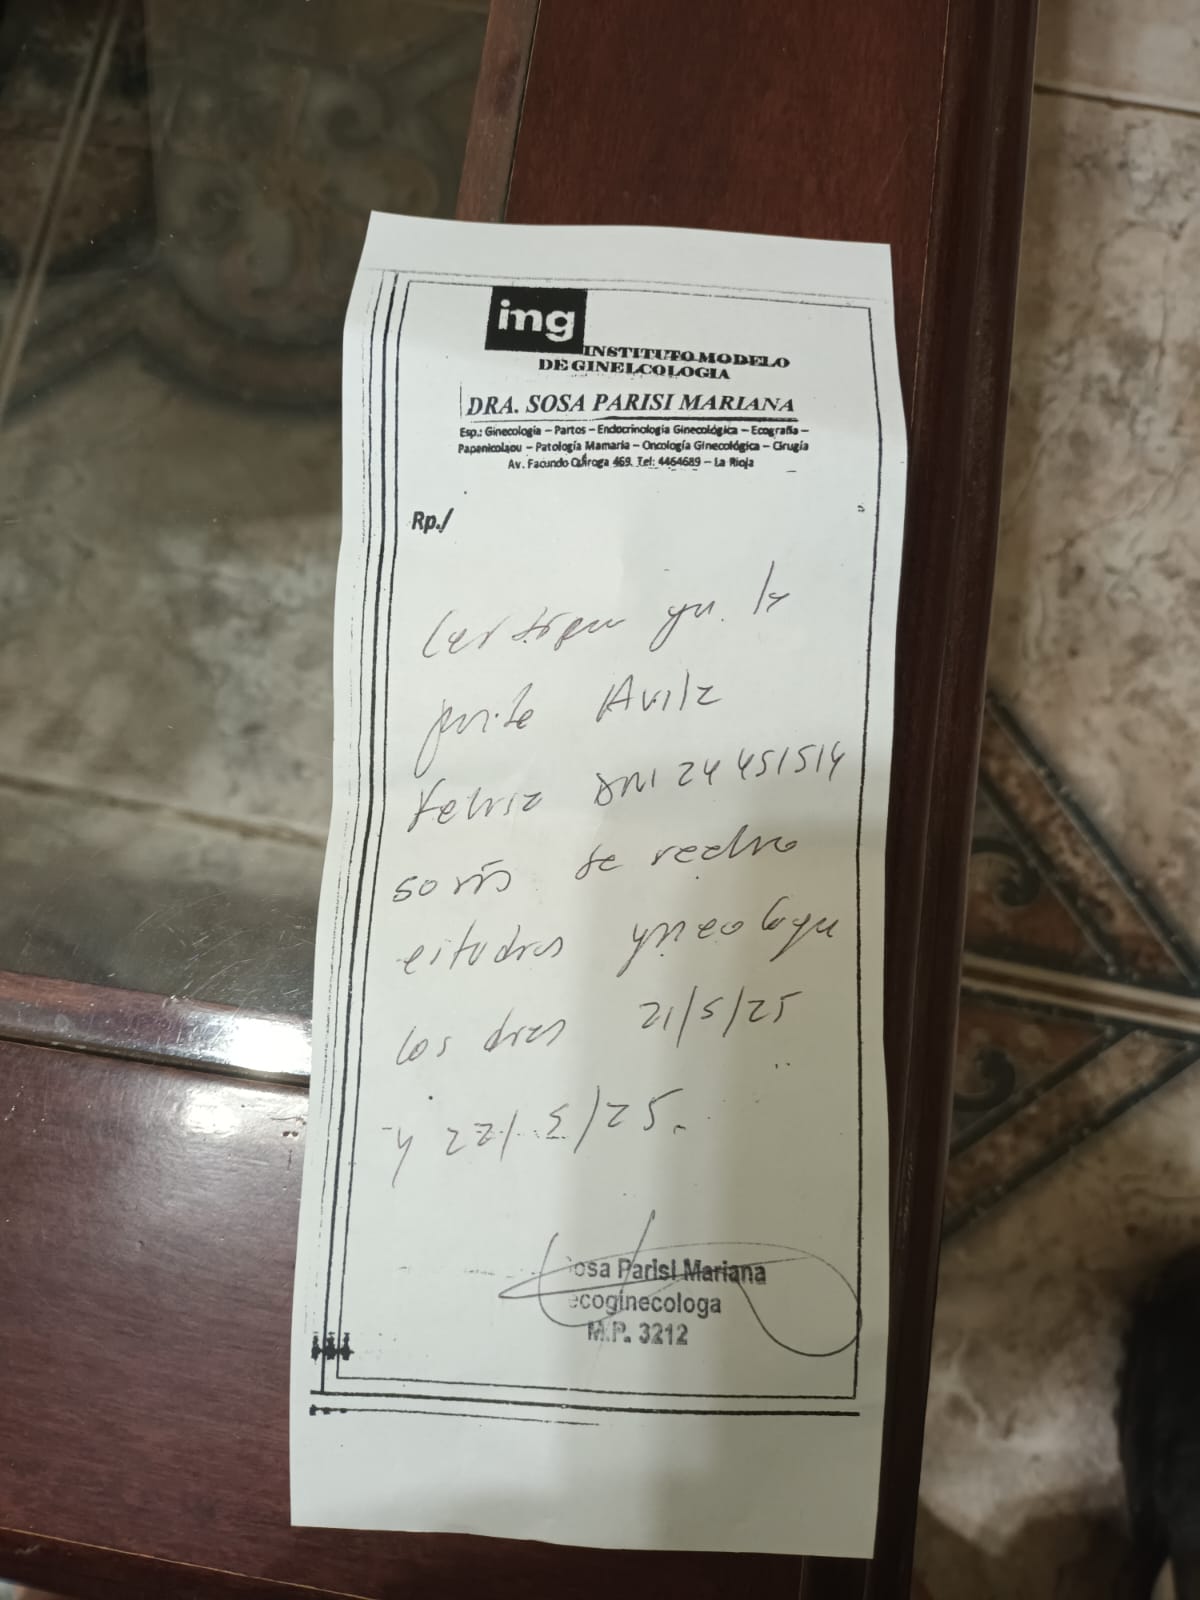 ing
INSTITUTO MODELO
DE GINELCOLOGIA
DRA. SOSA PARISI MARIANA
Esp.: Ginecología – Partos – Endocrinología Ginecológica – Ecografía –
Papanicolaou – Patología Mamaria – Oncología Ginecológica – Cirugía
Av. Facundo Quiroga 469. Tel: 4464689 – La Rioja
Rp./
la
Avila
DNI 24451514
se
estudios
los dias 21/5/25
y 22/5/25.
osa Parisi Mariana
ecoginecologa
M.P. 3212